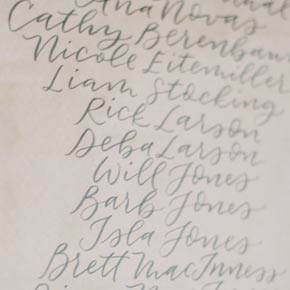 Ana Novas
Cathy Berenbaum
Nicole Eitemiller
Liam Stocking
Rick Larson
Deba Larson
Will Jones
Barb Jones
Isla Jones
Brett MacInness